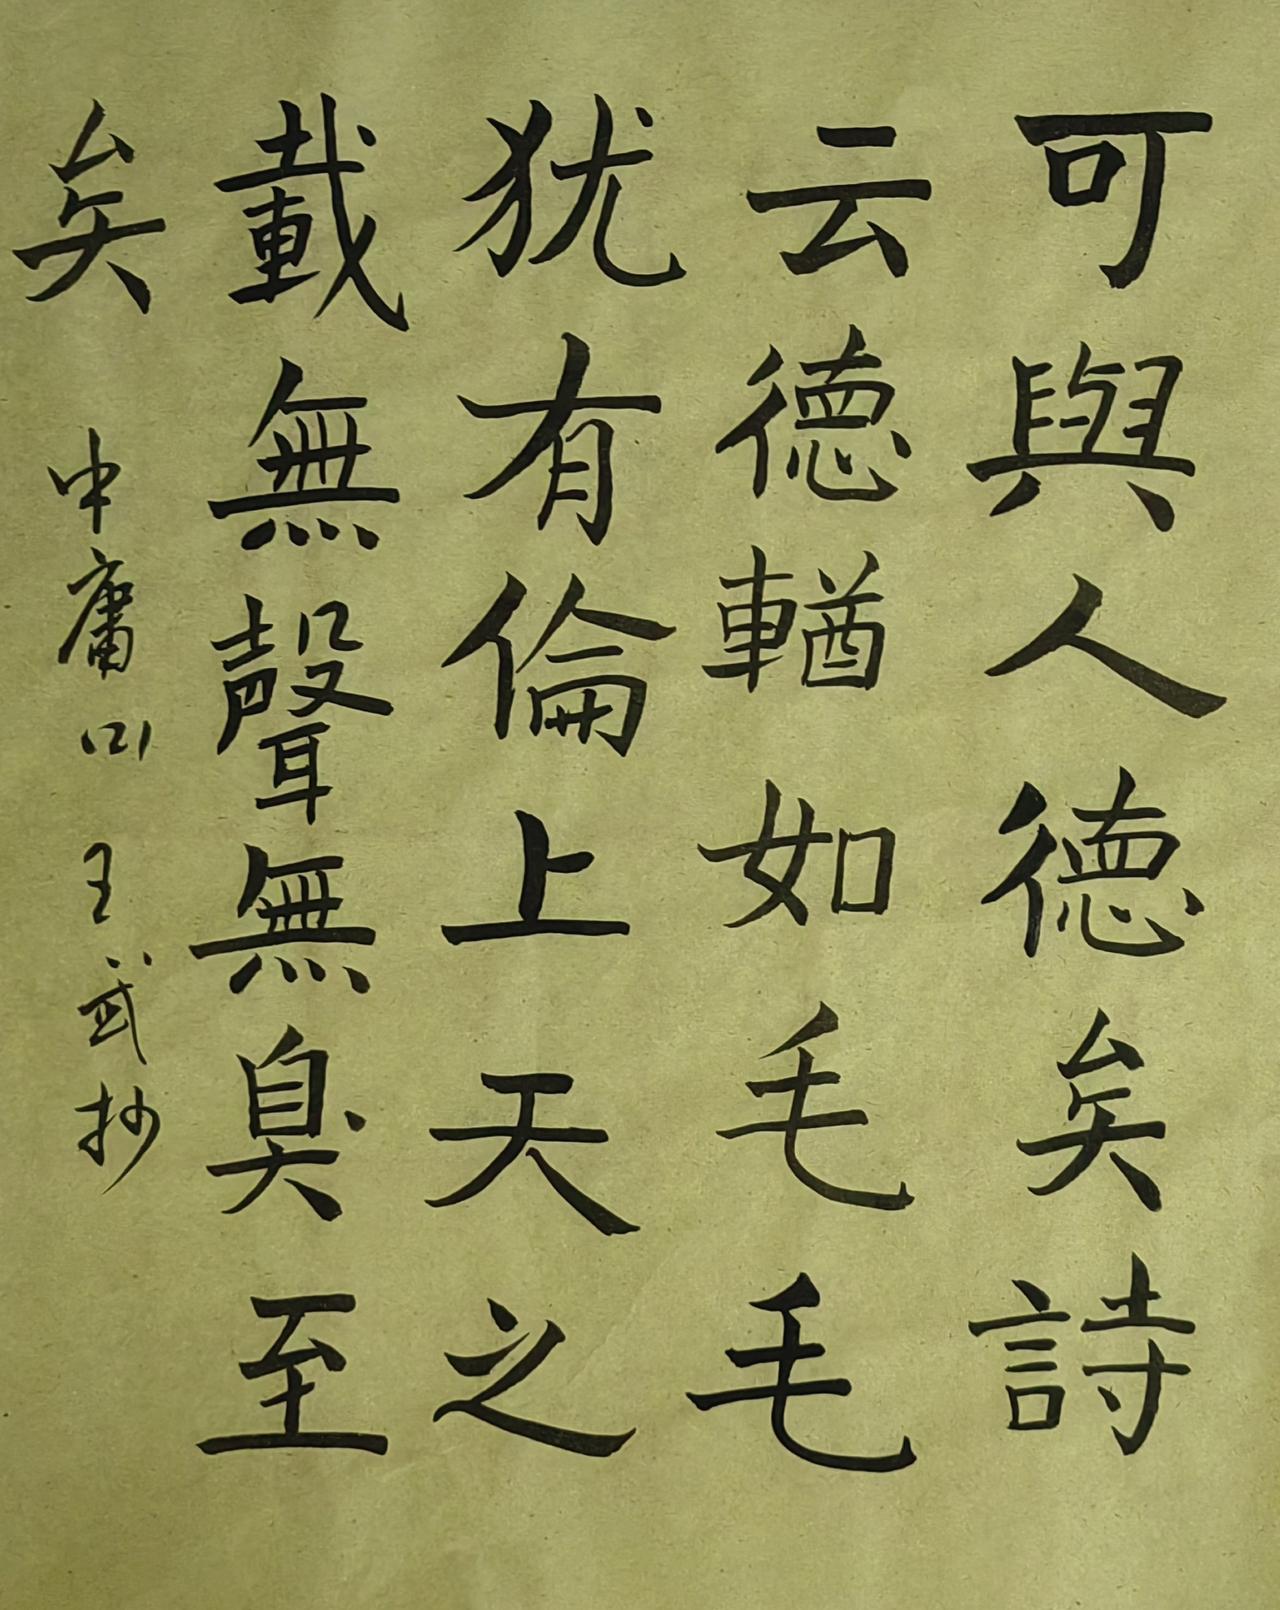 可與人徳矣詩
云徳輶如毛毛
犹有倫上天之
載無聲無臭至
矣 中庸 王武抄